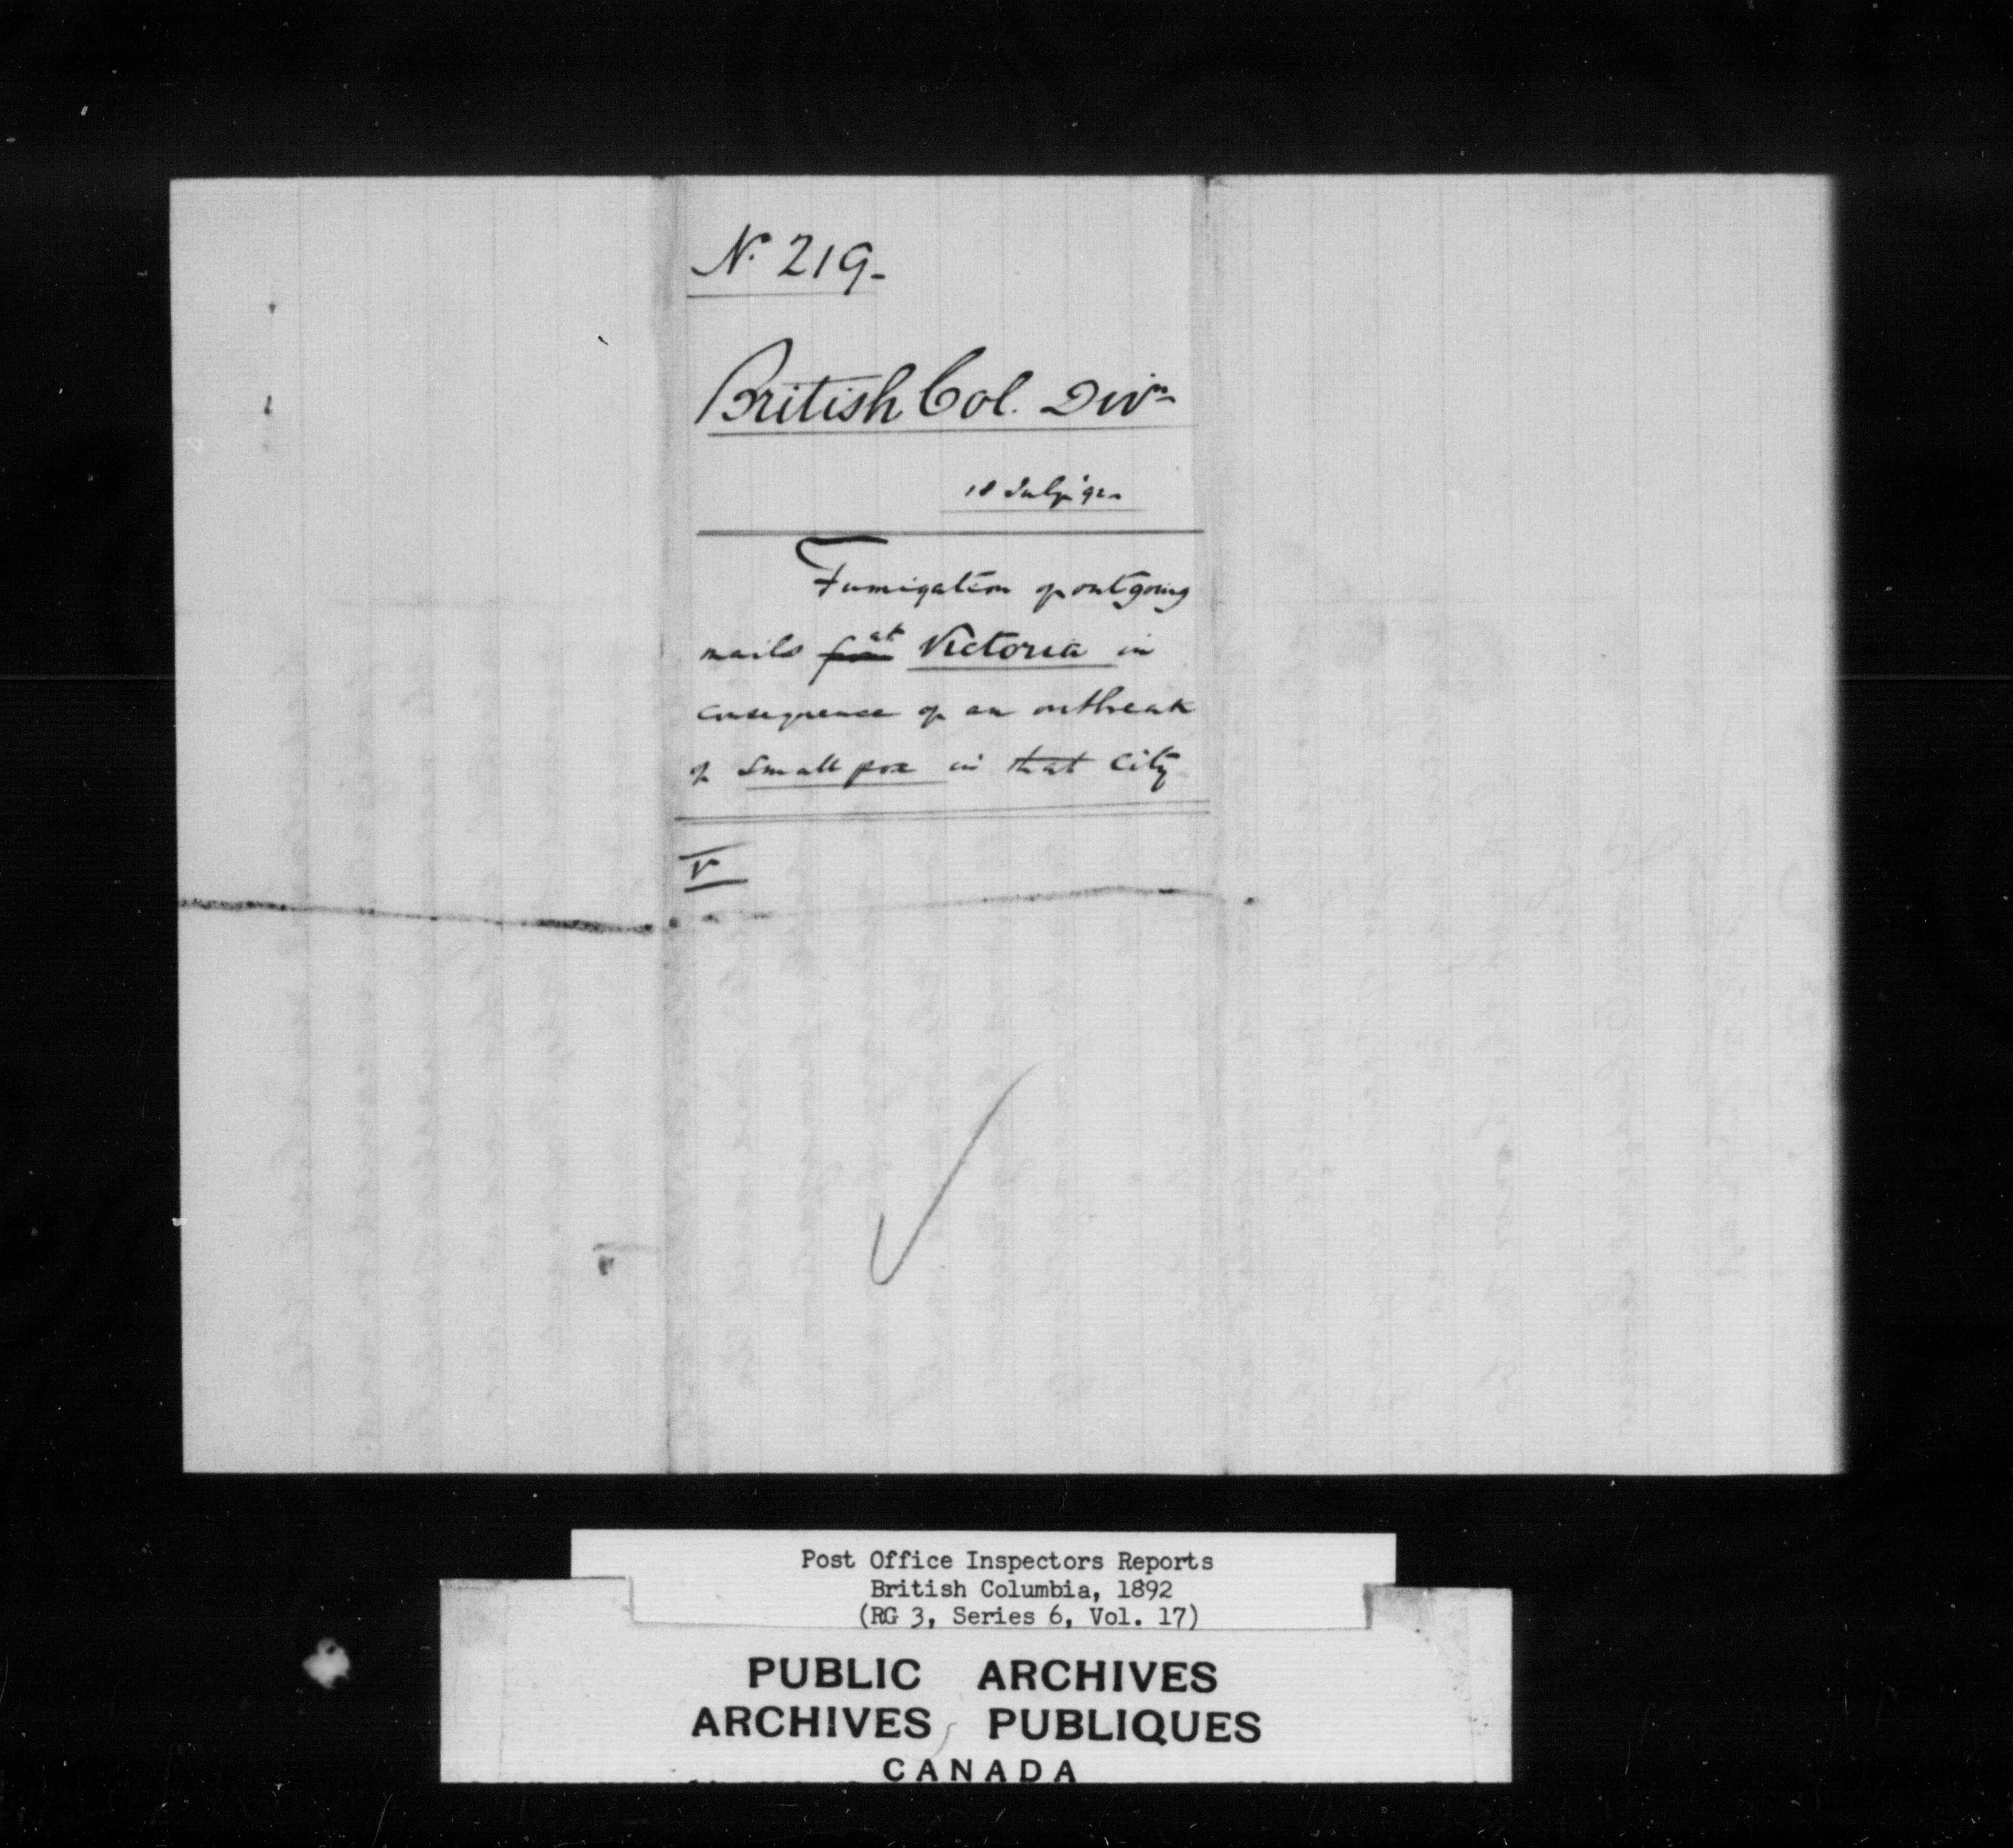 N. 219-
British Col. Divn
18 July '92
Fumigation of outgoing
mails from at Victoria in
consequence of an outbreak
of Small pox in that City
V
Post Office Inspectors Reports
British Columbia, 1892
(RG 3, Series 6, Vol. 17)
PUBLIC ARCHIVES
ARCHIVES PUBLIQUES
CANADA